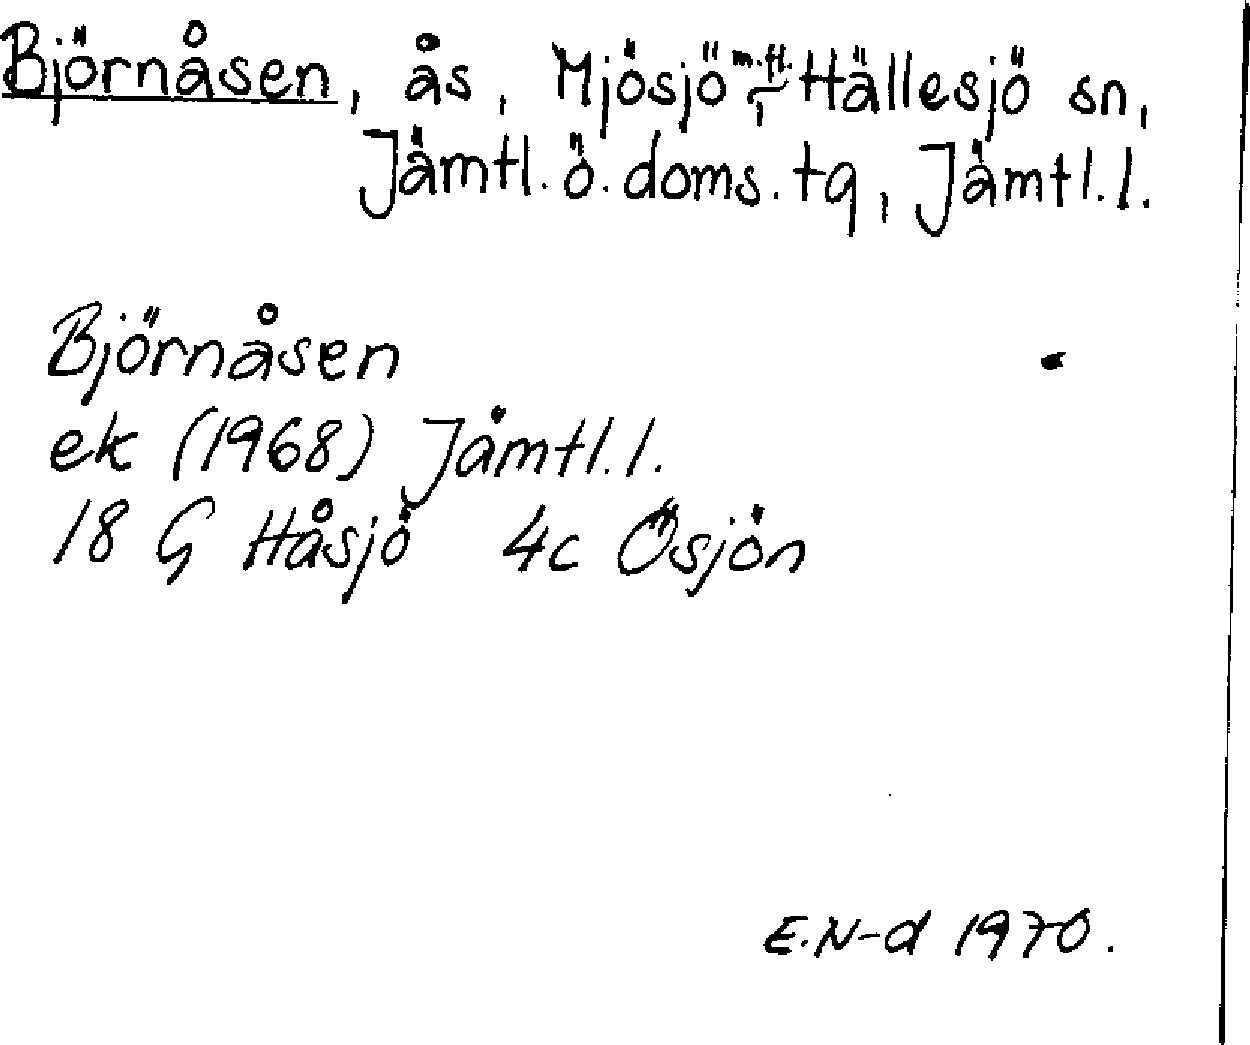 Björnåsen, ås, Mjösjö m.fl., Hällesjö sn,
Jämtl. ö. doms. tg, Jämtl. l.
Björnåsen
ek (1968) Jämtl. l.
18 G Håsjö 4c Ösjön
E.N-d 1970.